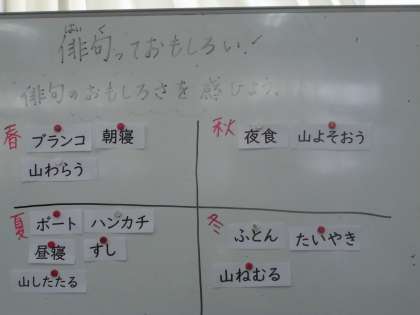 はいく
俳句っておもしろい！
俳句のおもしろさを感じよう。
春
ブランコ
朝寝
山わらう
秋
夜食
山よそおう
夏
ボート
ハンカチ
昼寝
すし
山したたる
冬
ふとん
たいやき
山ねむる